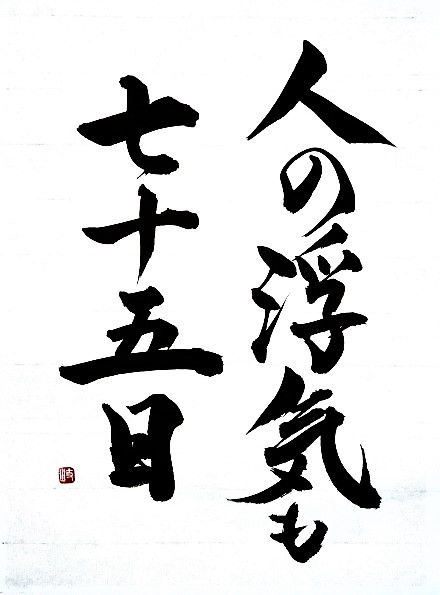 人の浮気も
七十五日